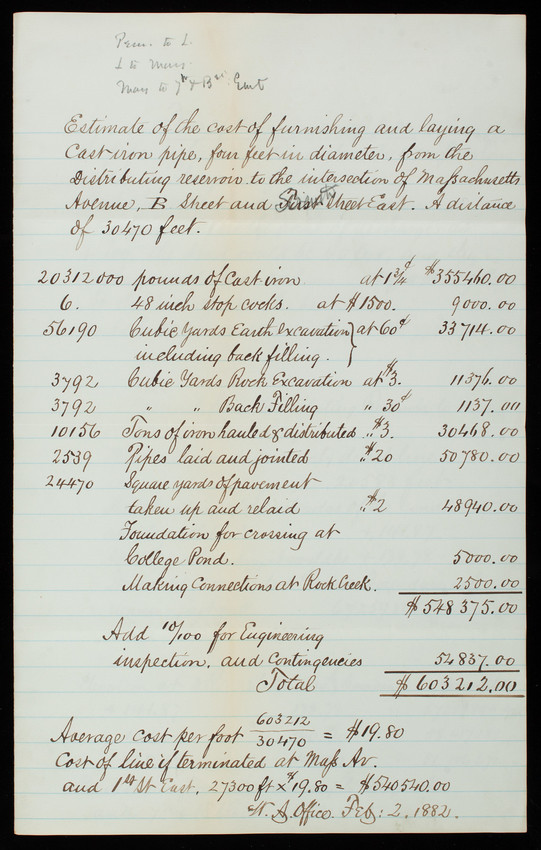 Penn. to L.
L to Mass.
Mass to 7th & B St. East
Estimate of the cost of furnishing and laying a
Cast-iron pipe, four feet in diameter, from the
Distributing reservoir to the intersection of Massachusetts
Avenue, B Street and Seventh Street East. A distance
of 30470 feet.
20312000 pounds of Cast iron at 1 3/4 ¢ $355460.00
6. 48 inch stop cocks. at $1500. 9000.00
56190 Cubic Yards Earth excavation } at 60¢ 33714.00
including back filling.
3792 Cubic Yards Rock Excavation at $3. 11376.00
3792 " " Back Filling " 30¢ 1137.00
10156 Tons of iron hauled & distributed " $3. 30468.00
2539 Pipes laid and jointed " $20 50780.00
24470 Square yards of pavement
taken up and relaid " $2 48940.00
Foundation for crossing at
College Pond. 5000.00
Making Connections at Rock Creek. 2500.00
$548375.00
Add 10/00 for Engineering
inspection, and Contingencies 54837.00
Total $603212.00
Average cost per foot 603212/30470 = $19.80
Cost of line if terminated at Mass Av.
and 1st St East, 27300 ft x $19.80 = $540540.00
W. A. Office. Feb: 2. 1882.